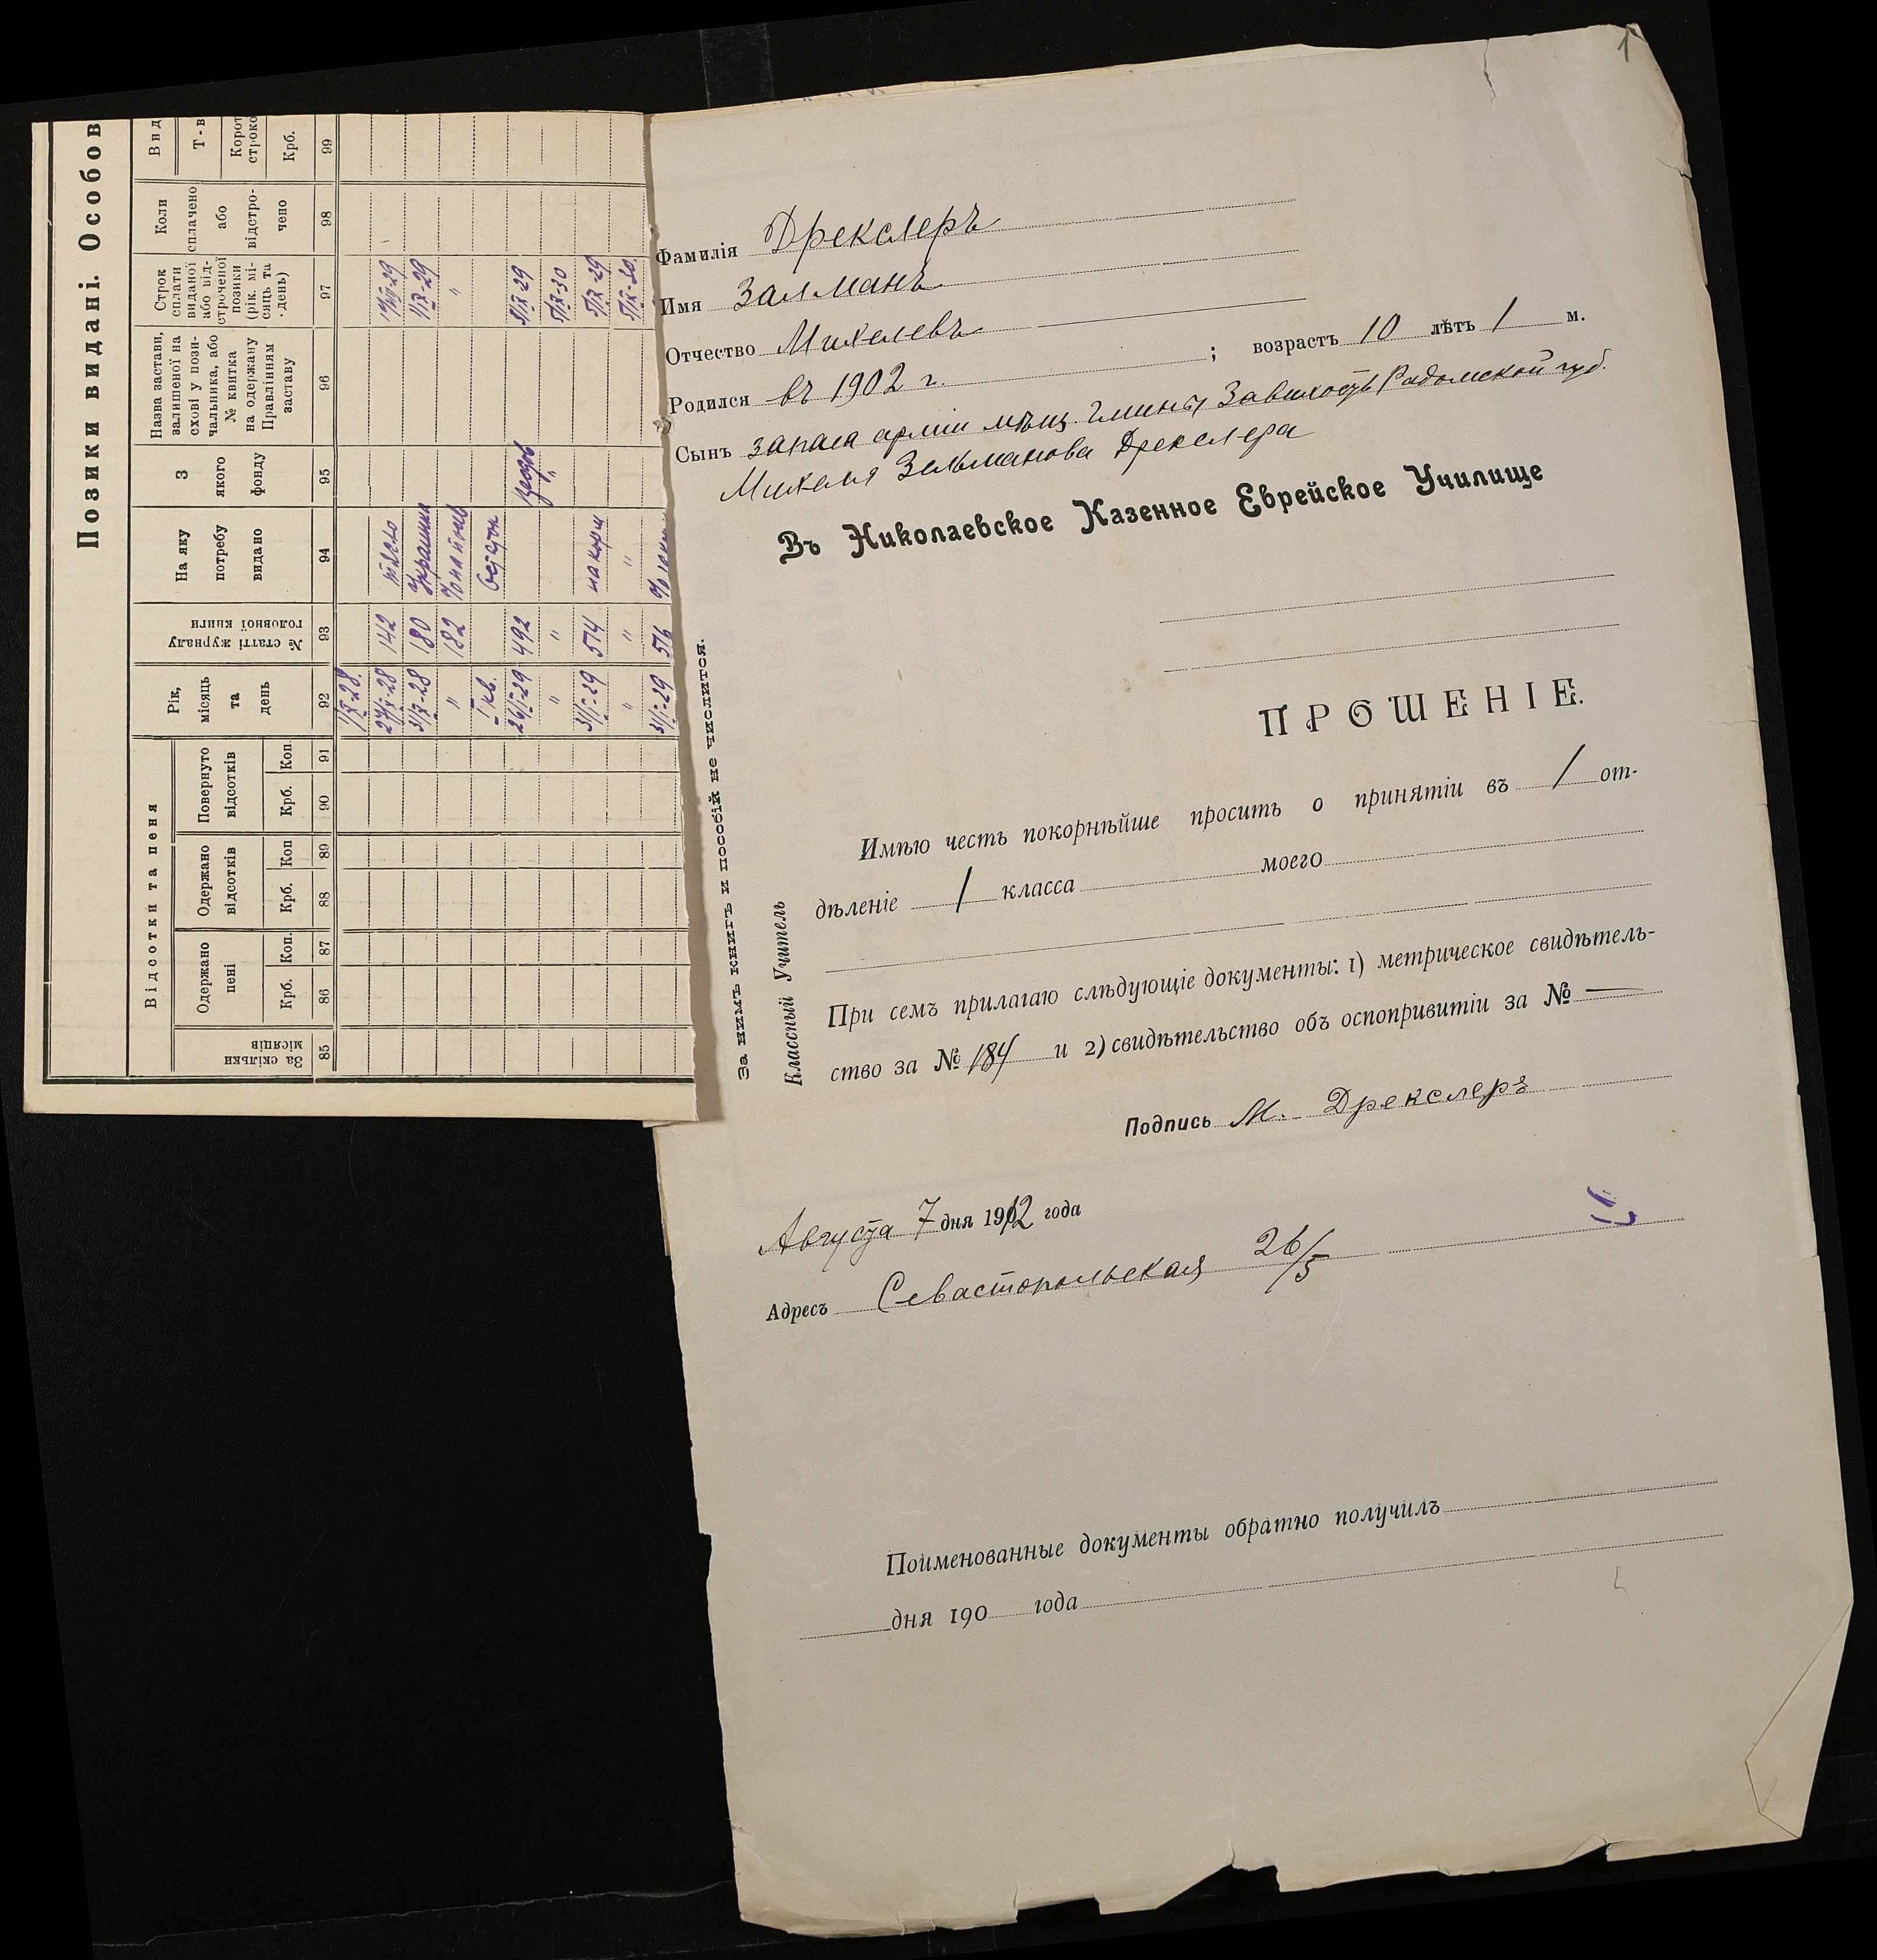 1
Фамилія Дрекслеръ
Имя Залманъ
Отчество Михелевъ
; возрастъ 10 лѣтъ 1 м.
Родился въ 1902 г.
Сынъ запаса арміи мѣщ. гмины Завихостъ Радомской губ.
Михеля Зельманова Дрекслера
Въ Николаевское Казенное Еврейское Училище
ПРОШЕНІЕ.
Имѣю честь покорнѣйше просить о принятіи въ 1 от-
дѣленіе 1 класса моего
При семъ прилагаю слѣдующіе документы: 1) метрическое свидѣтель-
ство за № 184 и 2) свидѣтельство объ оспопривитіи за № —
Подпись М. Дрекслеръ
Августа 7 дня 1912 года
Адресъ Севастопольская 26/5
Поименованные документы обратно получилъ
дня 190 года
За нимъ книгъ и пособій не числится.
Классный Учитель
Позики видані. Особов
Відсотки та пеня
За скільки місяців
Одержано пені
Одержано відсотків
Повернуто відсотків
Крб. Коп. Крб. Коп Крб. Коп.
Рік, місяць та день
№ статті журналу головної книги
На яку потребу видано
З якого фонду
Назва застави, залишеної на схові у пози-чальника, або № квитка на одержану Правлінням заставу
Строк сплати виданої або від-строченої позики (рік. мі-сяць та день)
Коли сплачено або відстро-чено
Вид
Т-в
Корот строко
Крб.
85 86 87 88 89 90 91 92 93 94 95 96 97 98 99
1/X-28.
27/X-28 142
31/X-28 180 1/IX-29
" 182 "
I кв.
26/I-29 492 5/IX-29
" " 5/IX-30
31/I-29 574 на корм 5/IX-29
" " " 5/IX-30
31/I-29 576